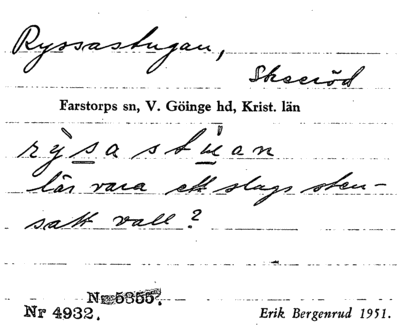 Ryssastugan,
Skeeröd
Farstorps sn, V. Göinge hd, Krist. län
rỳsastu̇an
lär vara ett slags sten-
satt vall?
Nr 5355.
Nr 4932.
Erik Bergenrud 1951.